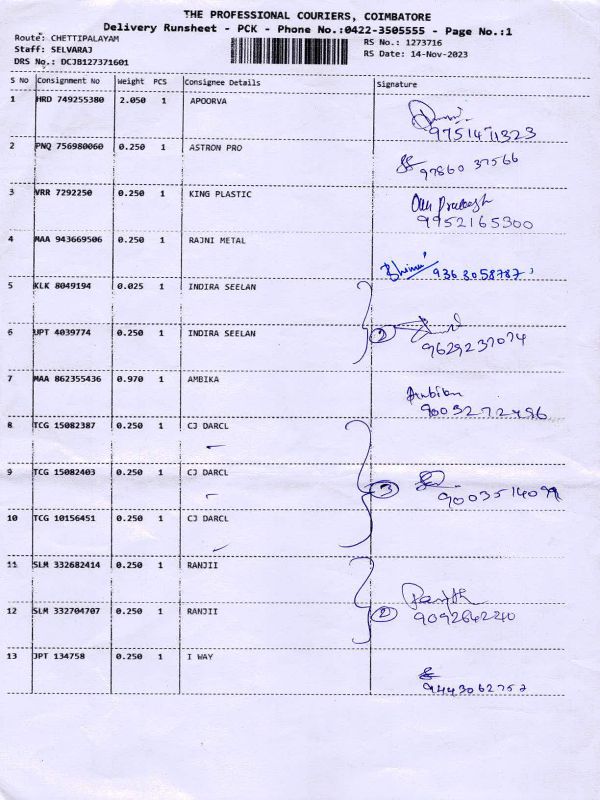 THE PROFESSIONAL COURIERS, COIMBATORE
Delivery Runsheet - PCK - Phone No.:0422-3505555 - Page No.:1
Route: CHETTIPALAYAM
Staff: SELVARAJ
DRS No.: DCJB127371601
RS No.: 1273716
RS Date: 14-Nov-2023
S No Consignment No Weight PCS Consignee Details Signature
1 HRD 749255380 2.050 1 APOORVA
9751471323
2 PNQ 756980060 0.250 1 ASTRON PRO
97860 37566
3 VRR 7292250 0.250 1 KING PLASTIC
Om Prakash
9952165300
4 MAA 943669506 0.250 1 RAJNI METAL
9363058787
5 KLK 8049194 0.025 1 INDIRA SEELAN
6 UPT 4039774 0.250 1 INDIRA SEELAN
2
9629237074
7 MAA 862355436 0.970 1 AMBIKA
Ambika
9003272486
8 TCG 15082387 0.250 1 CJ DARCL
9 TCG 15082403 0.250 1 CJ DARCL
3
10 TCG 10156451 0.250 1 CJ DARCL
11 SLM 332682414 0.250 1 RANJII
12 SLM 332704707 0.250 1 RANJII
2
9092642240
13 JPT 134758 0.250 1 I WAY
9443062752